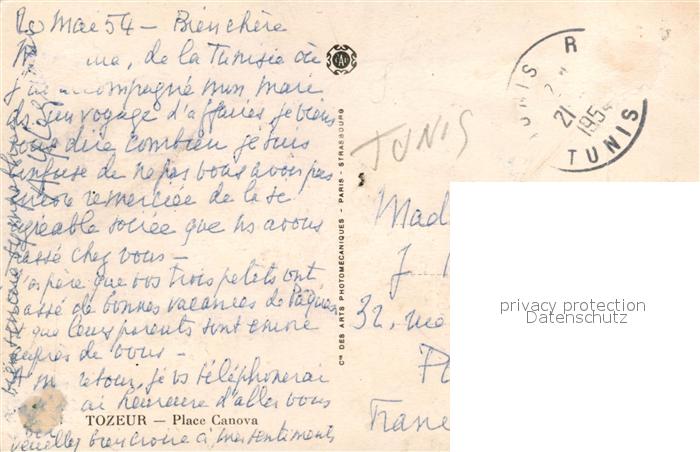 Mai 54 – Bien chère
de la Tunisie où
j'ai accompagné mon mari
ds un voyage d'affaires, je viens
vous dire combien je suis
confuse de ne pas vous avoir pas
encore remerciée de la si
agréable soirée que ns avons
passé chez vous –
J'espère que vos trois petits ont
passé de bonnes vacances de Pâques
et que leurs parents sont encore
auprès de vous –
A m retour, je vs téléphonerai
heureuse d'aller vous
TOZEUR — Place Canova
veuillez bien croire à mes sentiments
Cie DES ARTS PHOTOMÉCANIQUES - PARIS - STRASBOURG
CAP
TUNIS
TUNIS R
21
1954
TUNIS
Mad
J
32, rue
France
privacy protection
Datenschutz